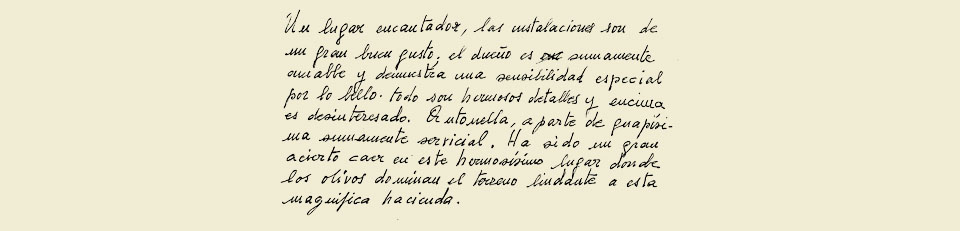 Un lugar encantador, las instalaciones son de
un gran buen gusto. el dueño es sumamente
amable y demuestra una sensibilidad especial
por lo bello. todo son hermosos detalles y encima
es desinteresado. Antonella, a parte de guapísi-
ma sumamente servicial. Ha sido un gran
acierto caer en este hermosísimo lugar donde
los olivos dominan el terreno lindante a esta
magnifica hacienda.